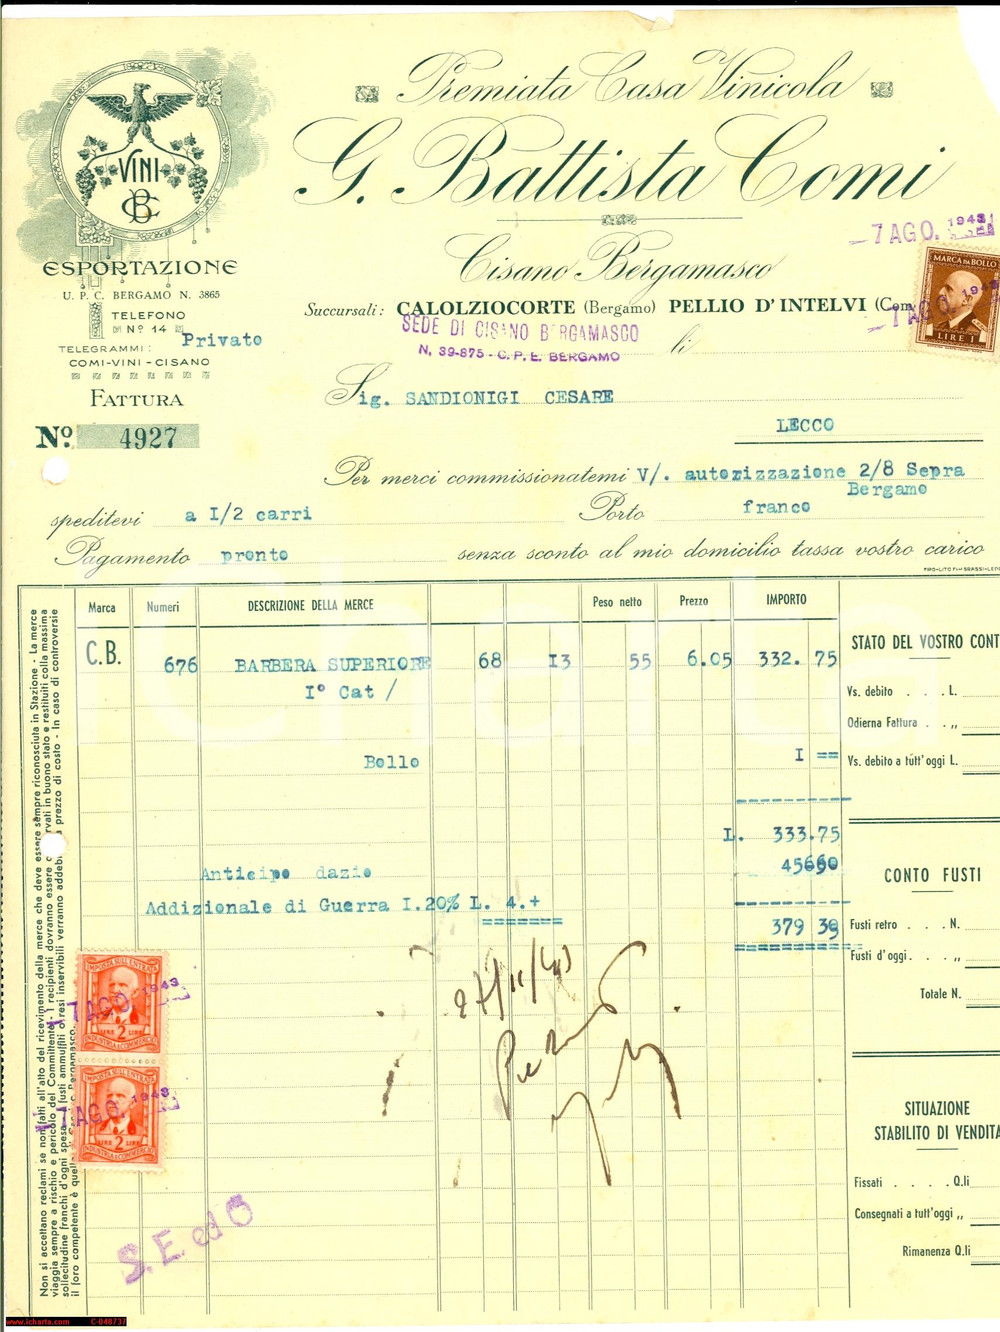 Premiata Casa Vinicola
G. Battista Comi
Cisano Bergamasco
Succursali: CALOLZIOCORTE (Bergamo) PELLIO D'INTELVI (Com
SEDE DI CISANO BERGAMASCO
N. 39-875 - C. P. E. BERGAMO
li
7 AGO. 1943
MARCA DA BOLLO
LIRE 1
VINI
ESPORTAZIONE
U. P. C. BERGAMO N. 3865
TELEFONO
Nº 14
Privato
TELEGRAMMI:
COMI-VINI-CISANO
FATTURA
Nº 4927
Sig. SANDIONIGI CESARE
LECCO
Per merci commissionatemi V/. autorizzazione 2/8 Sepra
Bergamo
speditevi a I/2 carri Porto franco
Pagamento pronto senza sconto al mio domicilio tassa vostro carico
Marca Numeri DESCRIZIONE DELLA MERCE Peso netto Prezzo IMPORTO
C.B. 676 BARBERA SUPERIORE 68 I3 55 6.05 332. 75
I° Cat /
Bollo I ==
L. 333.75
Anticipo dazio
Addizionale di Guerra I.20% L. 4.+
379
STATO DEL VOSTRO CONT
Vs. debito . . . L.
Odierna Fattura . . „
Vs. debito a tutt'oggi L.
CONTO FUSTI
Fusti retro . . . N.
Fusti d'oggi . . . „
Totale N.
SITUAZIONE
STABILITO DI VENDITA
Fissati . . . . Q.li
Consegnati a tutt'oggi „
Rimanenza Q.li
IMPOSTA SULL'ENTRATA
LIRE 2 LIRE
INDUSTRIA E COMMERCIO
7 AGO. 1943
IMPOSTA SULL'ENTRATA
LIRE 2 LIRE
INDUSTRIA E COMMERCIO
7 AGO. 1943
S. E ed O
Non si accettano reclami se non fatti all'atto del ricevimento della merce che deve essere sempre riconosciuta in Stazione - La merce
viaggia sempre a rischio e pericolo del Committente - I recipienti dovranno essere vati in buono stato e restituiti colla massima
sollecitudine franchi d'ogni spesa fusti ammuffiti o resi inservibili verranno addeb prezzo di costo - In caso di controversie
il foro competente è quel Bergamasco.
www.icharta.com C-040737